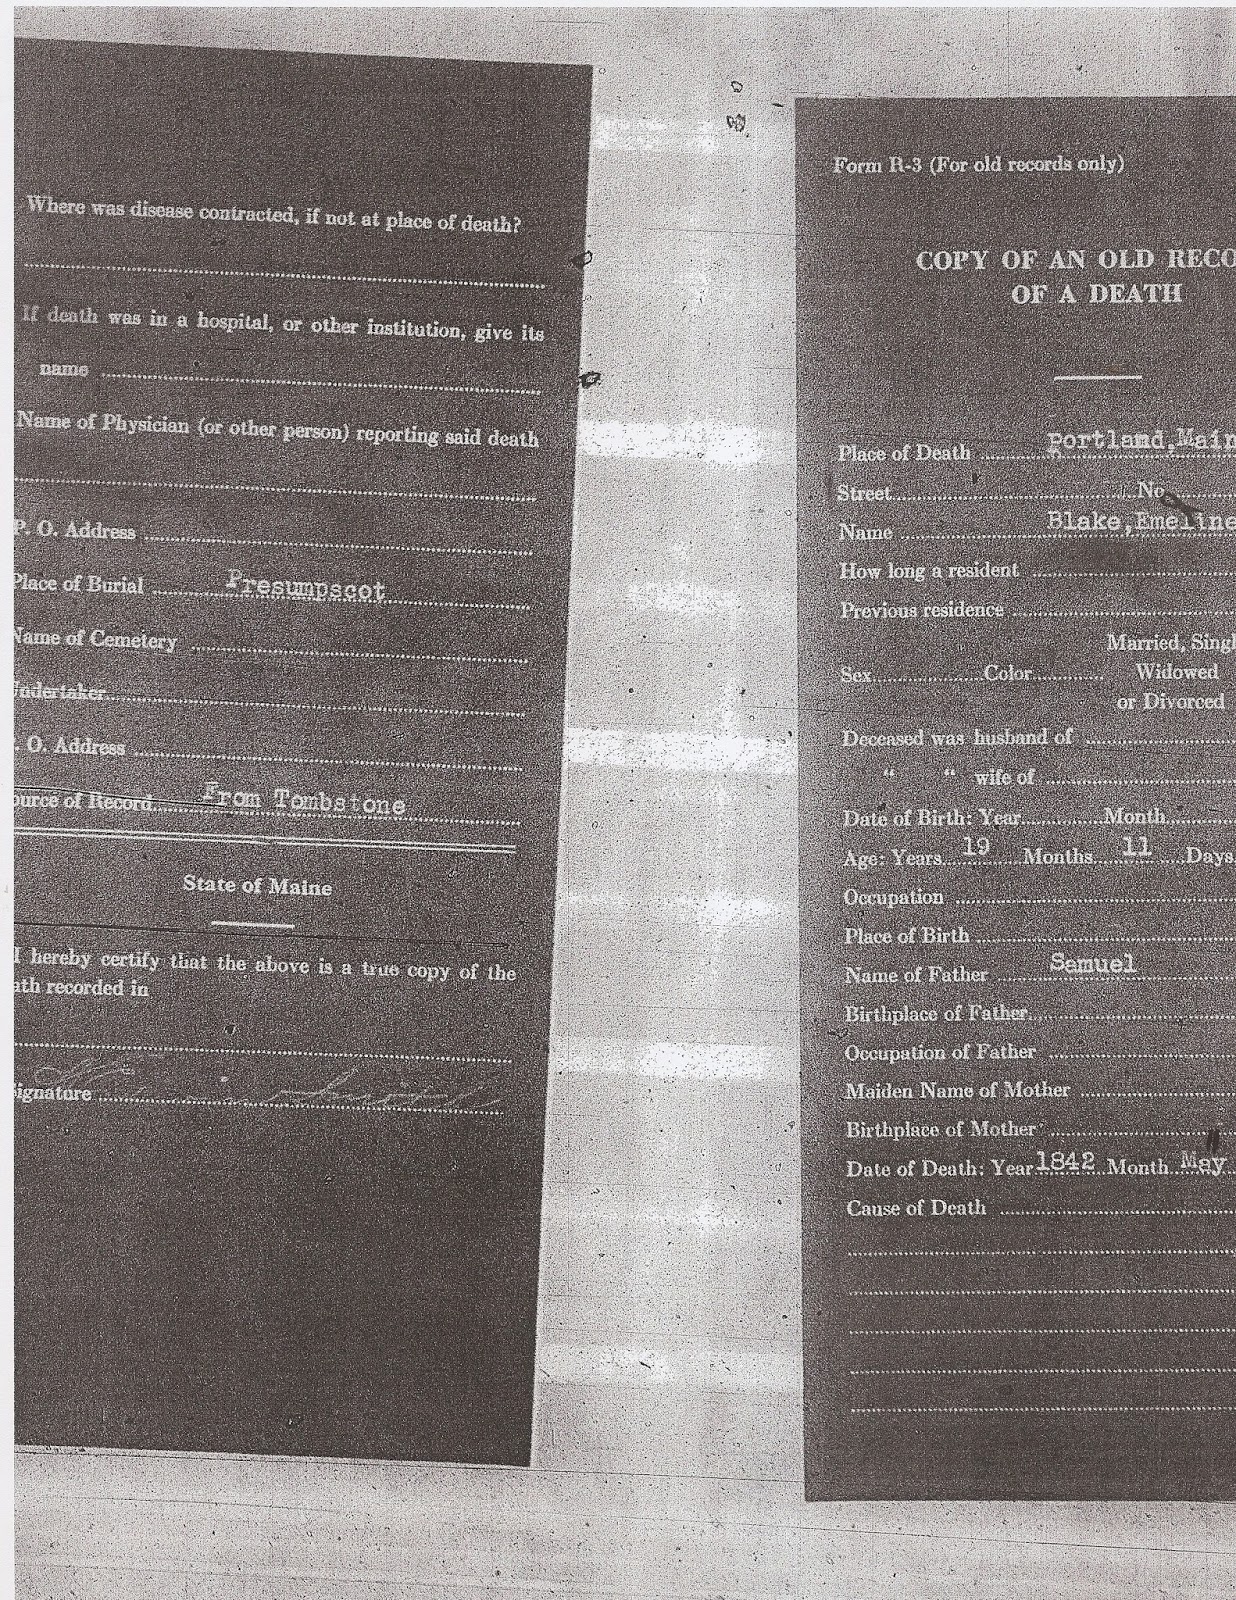 Where was disease contracted, if not at place of death?
If death was in a hospital, or other institution, give its
name
Name of Physician (or other person) reporting said death
P. O. Address
Place of Burial Presumpscot
Name of Cemetery
Undertaker
. O. Address
ource of Record From Tombstone
State of Maine
I hereby certify that the above is a true copy of the
ath recorded in
ignature
Form R-3 (For old records only)
COPY OF AN OLD RECO
OF A DEATH
Place of Death Portland, Main
Street No
Name Blake, Emeline
How long a resident
Previous residence
Married, Singl
Sex Color Widowed
or Divorced
Deceased was husband of
" " wife of
Date of Birth: Year Month
Age: Years 19 Months 11 Days
Occupation
Place of Birth
Name of Father Samuel
Birthplace of Father
Occupation of Father
Maiden Name of Mother
Birthplace of Mother
Date of Death: Year 1842 Month May
Cause of Death